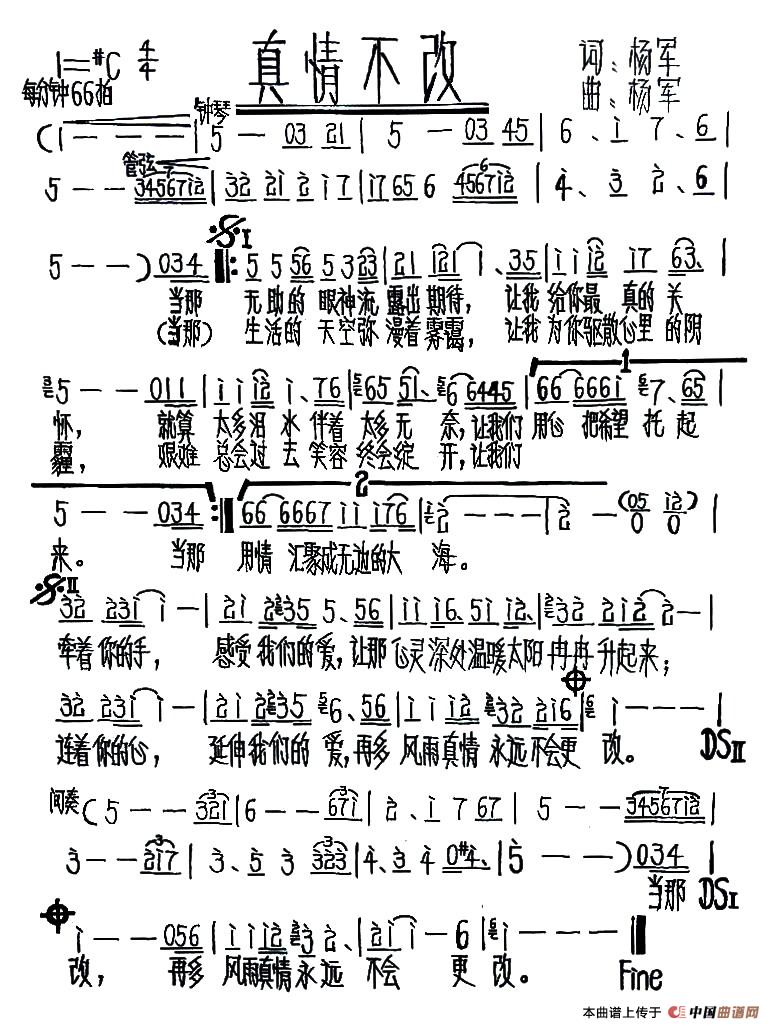 真情不改
1=#C 4/4
词：杨军
曲：杨军
每分钟66拍
钟琴
(1 — — — | 5 — 03 21 | 5 — 03 45 | 6、 i 7、 6 |
管弦
5 — — 34567i2 | 32 21 2 i7 | i7 65 6 4567i2 | 4、 3 2、 6 |
𝄋I
5 — —) 034 ‖: 5 5 56 5 3 23 | 21 121 1、 35 | i i i2 i7 63、 |
当那 无助的 眼神流露出期待， 让我 给你最 真的 关
(当那) 生活的 天空弥漫着雾霭， 让我 为你驱散心里 的阴
1
5 — — 011 | i i i2 i、 76 | 65 51、 6 6445 | 66 666i 7、 65 |
怀， 就算 太多泪 水 伴着 太多无 奈，让我们 用心 把希望 托 起
霾， 艰难 总会过 去 笑容 终会绽 开，让我们
2
5 — — 034 :‖ 66 6667 i i i76 | 2 — — — | 2 — (05 i2 0 0) |
来。 当那 用情 汇聚成无边的大 海。
𝄋II
32 23i i — | 2i 235 5、 56 | i i i6、 5i i2、 | 32 2i2 2 — |
牵着 你的手， 感受 我们的 爱，让那 心灵深处温暖太阳 冉冉 升起来；
32 23i i — | 2i 235 6、 56 | i i i i2 32 2i6 | i — — — |
连着 你的心， 延伸我们的 爱，再多 风雨真情 永远 不会更 改。 DSII
间奏 (5 — — 32i | 6 — — 67i | 2、 i 7 67 | 5 — — 34567i2 |
3 — — 2i7 | 3、 5 3 323 | 4、 3 4 0#4、 | 5 — —) 034 |
当那 DSI
i — — 056 | i i i i2 3 2、 | 2i i — 6 | i — — — ‖
改， 再多 风雨真情 永 远 不会 更 改。 Fine
本曲谱上传于 中国曲谱网